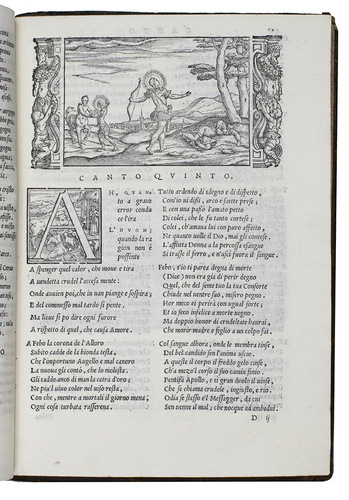 CANTO QVINTO.
AH, QVANto
a graue
error condu
ce l'ira
L'HVOM;
quando la ra
gion non è
possente
A spenger quel calor, che moue e tira
A uendetta crudel l'accesa mente:
Onde auuien poi, che in uan piange e sospira;
E del commesso mal tardo si pente.
Ma lieue si po dire ogni furore
A rispetto di quel, che causa Amore.
A Febo la corona de l'Alloro
Subito cadde de la bionda testa,
Che l'importuno Augello e mal canoro
La nuoua gli contò, che lo molesta.
Gli cadde anco di man la cetra d'oro;
Ne piu'l uiuo color nel uiso resta,
Con che, mentre a mortali il giorno mena,
Ogni cosa turbata rasserena.
Tutto ardendo di sdegno e di dispetto,
Com'io ui dissi, arco e saette prese;
E con una passò l'amato petto
Di colei, che le fu tanto cortese;
Colei, ch'amaua lui con puro affetto,
Ne quanto uolle il Dio, mai gli contese.
L'afflitta Donna a la percossa estrema
Si trasse il ferro, e n'uscì fuora il sangue.
Febo, s'io ti parea degna di morte
(Dice) non era già di perir degno
Quel, che del seme tuo la tua Consorte
Chiude nel uentre suo, misero pegno.
Hor meco ei perirà con ugual sorte,
Et io seco infelice a morte uegno.
Ma doppio honor di crudeltate haurai,
Che morir madre e figlio a un colpo fai.
Col sangue alhora, onde le membra tinse,
Del bel candido sen l'anima uscio.
A quelle il corpo il freddo gelo cinse,
Ch'a mezo'l corso il suo camin finio.
Pentissi Apollo, e sì gran duolo il uinse,
Che se chiama crudele, ingiusto, e rio;
Odia se stesso e'l Messaggier, da cui
Sen uenne il mal; che nocque ad ambodui.
D ij